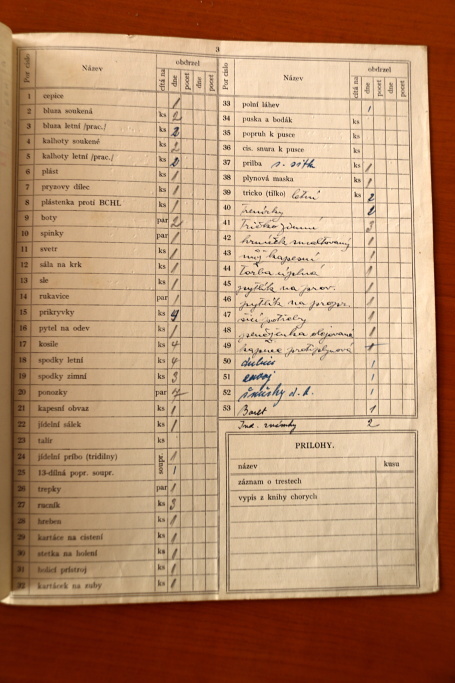 3
Por číslo Název čítá na obdrzel dne pocet dne pocet
1 cepice 1
2 bluza soukená ks 2
3 bluza letní /prac./ ks 2
4 kalhoty soukené ks 2
5 kalhoty letní /prac./ ks 2
6 plást ks 1
7 pryzovy dílec ks 1
8 plástenka proti BCHL ks 1
9 boty par 2
10 spinky par 1
11 svetr ks 1
12 sála na krk ks 1
13 sle ks 1
14 rukavice par 1
15 prikryvky ks 4
16 pytel na odev ks 1
17 kosile ks 4
18 spodky letní ks 4
19 spodky zimní ks 3
20 ponozky par
21 kapesní obvaz ks 1
22 jídelní sálek ks 1
23 talír ks
24 jídelní príbo (trídílny) soupr. 1
25 13-dílná popr. soupr. 1
26 trepky par 1
27 rucník ks 3
28 hreben ks 1
29 kartáce na cistení ks 1
30 stetka na holení ks 1
31 holicí prístroj ks 1
32 kartácek na zuby ks 1
Por číslo Název čítá na obdrzel dne pocet dne pocet
33 polní láhev 1
34 puska a bodák ks
35 popruh k pusce ks
36 cis. snura k pusce ks
37 prilba s. sítk ks 1
38 plynová maska ks 1
39 tricko (tílko) letní ks 2
40 Trenírky 2
41 Tričko zimní 3
42 hrníček smaltovaný 1
43 nůž kapesní 1
44 torba úplná 1
45 pytlík na prov. 1
46 pytlík na 1
47 potřeby 1
48 1
49 kapuce protiplynová 1
50 1
51 1
52 1
53 Baret 1
Ind. známky 2
PRILOHY.
název kusu
záznam o trestech
vypis z knihy chorych